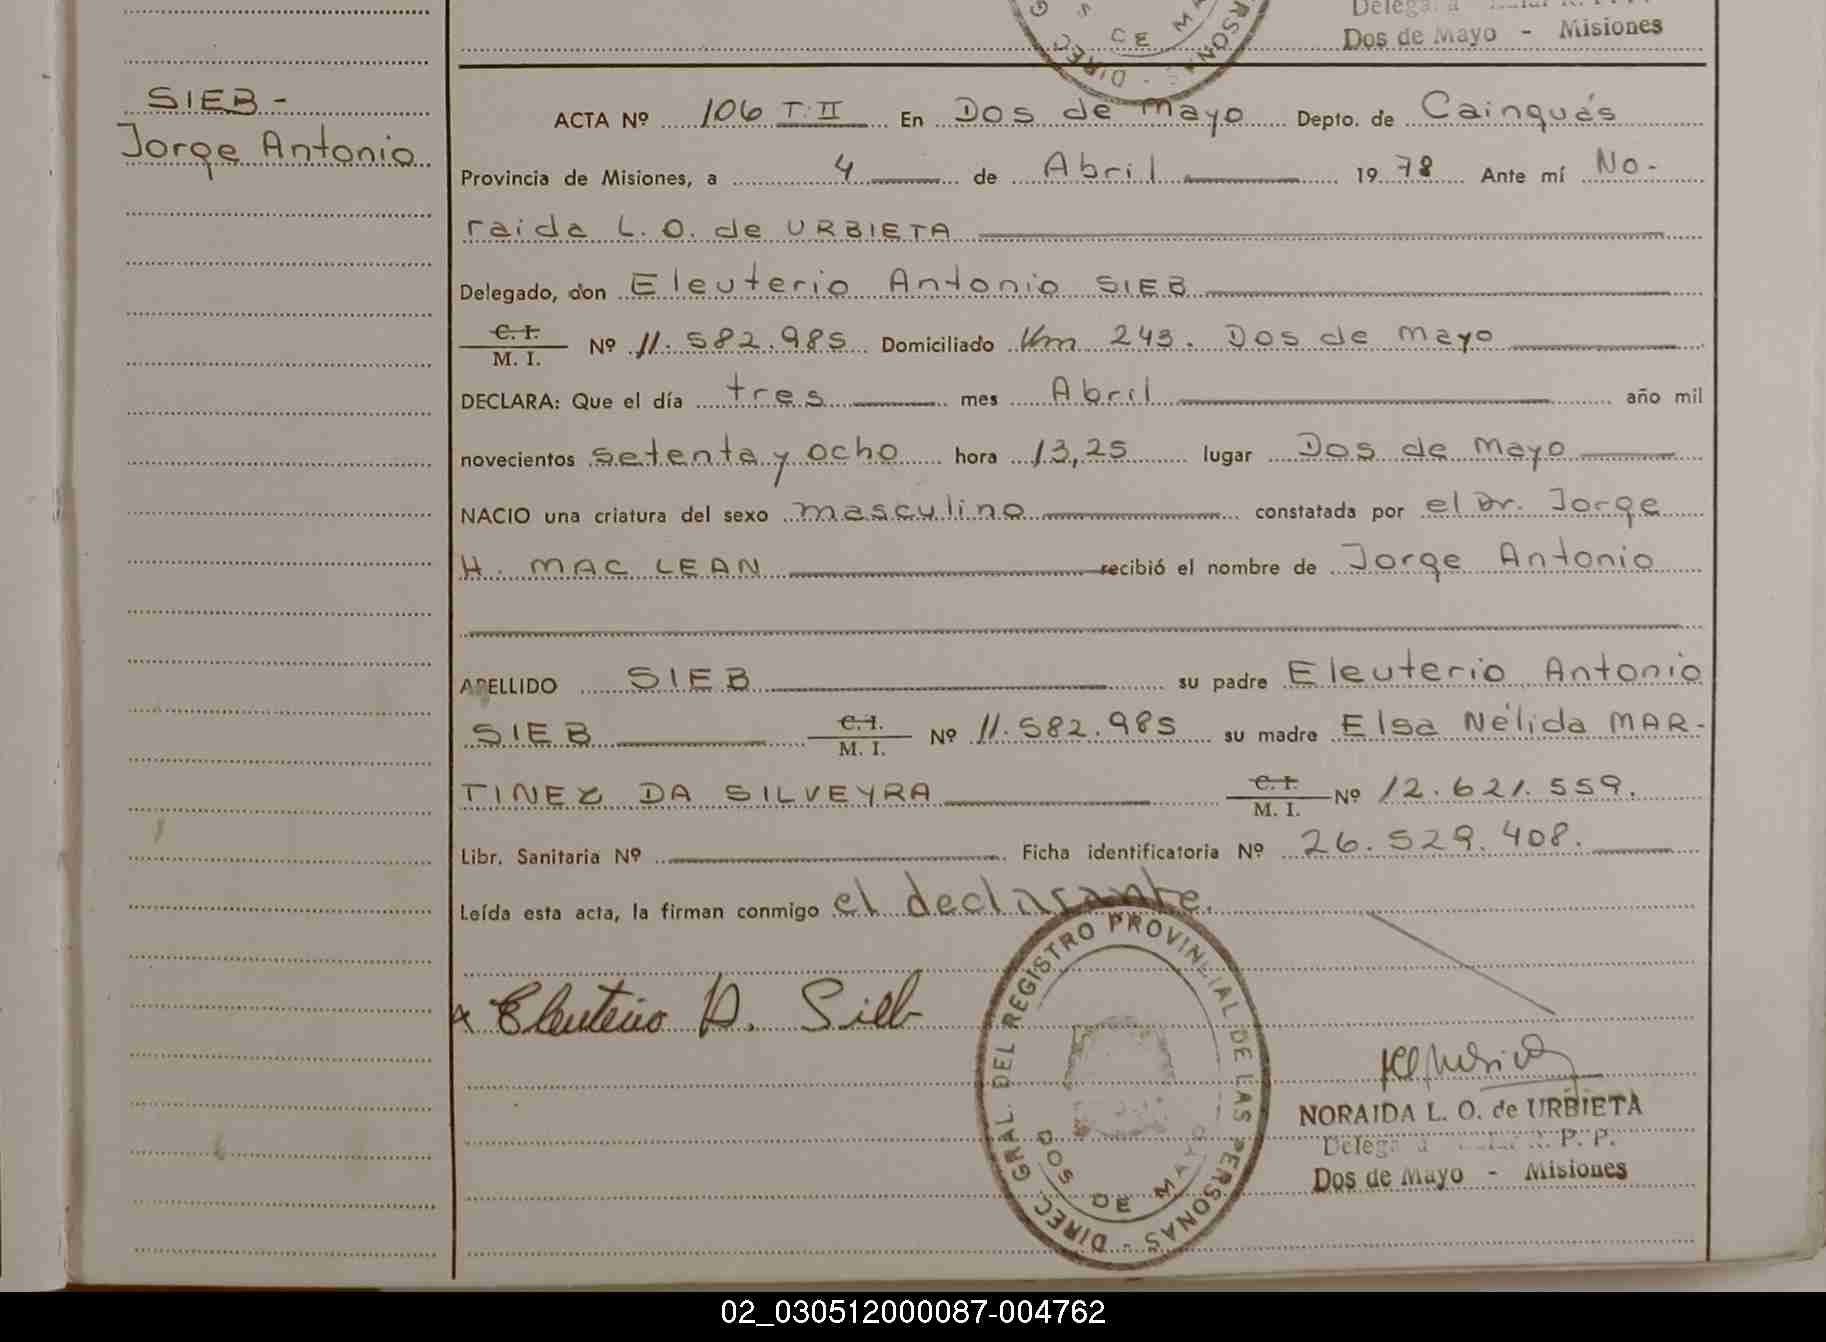 Dos de Mayo - Misiones
SIEB -
Jorge Antonio
ACTA Nº 106 T. II En Dos de Mayo Depto. de Cainguás
Provincia de Misiones, a 4 de Abril 1978 Ante mí No-
raida L. O. de URBIETA
Delegado, don Eleuterio Antonio SIEB
C. I.
M. I. Nº 11.582.985 Domiciliado Km 243. Dos de Mayo
DECLARA: Que el día tres mes Abril año mil
novecientos setenta y ocho hora 13,25 lugar Dos de Mayo
NACIO una criatura del sexo masculino constatada por el Dr. Jorge
H. MAC LEAN recibió el nombre de Jorge Antonio
APELLIDO SIEB su padre Eleuterio Antonio
SIEB C. I. M. I. Nº 11.582.985 su madre Elsa Nélida MAR-
TINEZ DA SILVEYRA C. I. M. I. Nº 12.621.559.
Libr. Sanitaria Nº Ficha identificatoria Nº 26.529.408.
Leída esta acta, la firman conmigo el declarante.
Eleuterio A. Sieb
DIREC. GRAL. DEL REGISTRO PROVINCIAL DE LAS PERSONAS -
DOS DE MAYO
NORAIDA L. O. de URBIETA
P. P.
Dos de Mayo - Misiones
02_030512000087-004762